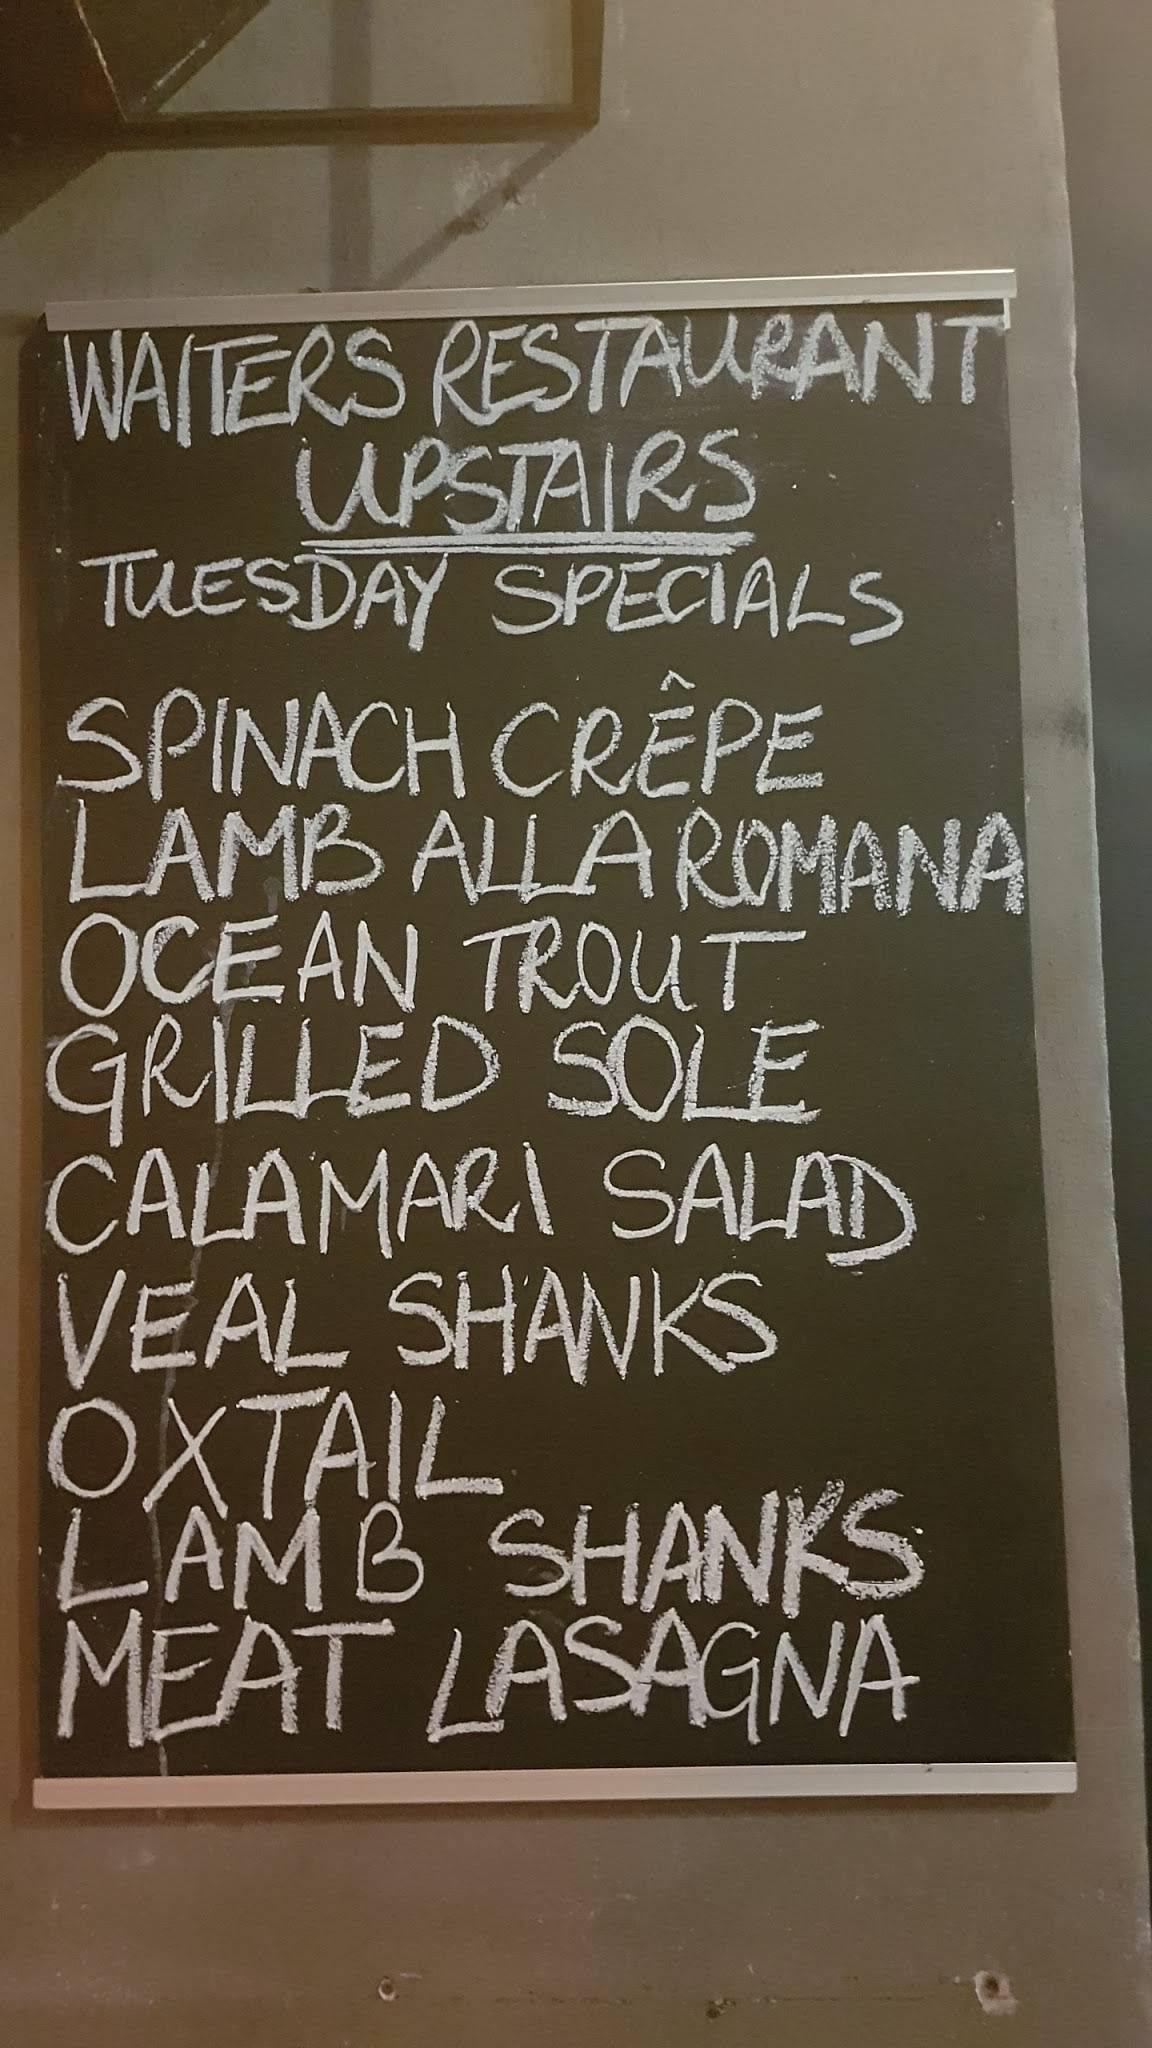 WAITERS RESTAURANT
UPSTAIRS
TUESDAY SPECIALS
SPINACH CRÊPE
LAMB ALLA ROMANA
OCEAN TROUT
GRILLED SOLE
CALAMARI SALAD
VEAL SHANKS
OXTAIL
LAMB SHANKS
MEAT LASAGNA